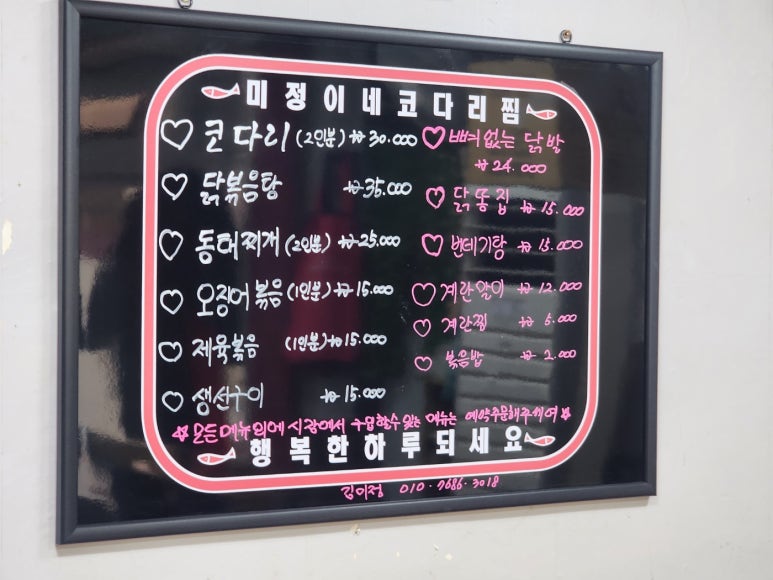 미정이네코다리찜
코다리 (2인분) ₩30.000
닭볶음탕 ₩35.000
동태찌개 (2인분) ₩25.000
오징어볶음 (1인분) ₩15.000
제육볶음 (1인분) ₩15.000
생선구이 ₩15.000
뼈없는 닭발
₩24.000
닭똥집 ₩15.000
번데기탕 ₩15.000
계란말이 ₩12.000
계란찜 ₩5.000
볶음밥 ₩2.000
모든메뉴외에 시장에서 구입할수 있는 메뉴는 예약주문해주세여
행복한하루되세요
김미정 010·7686·3018